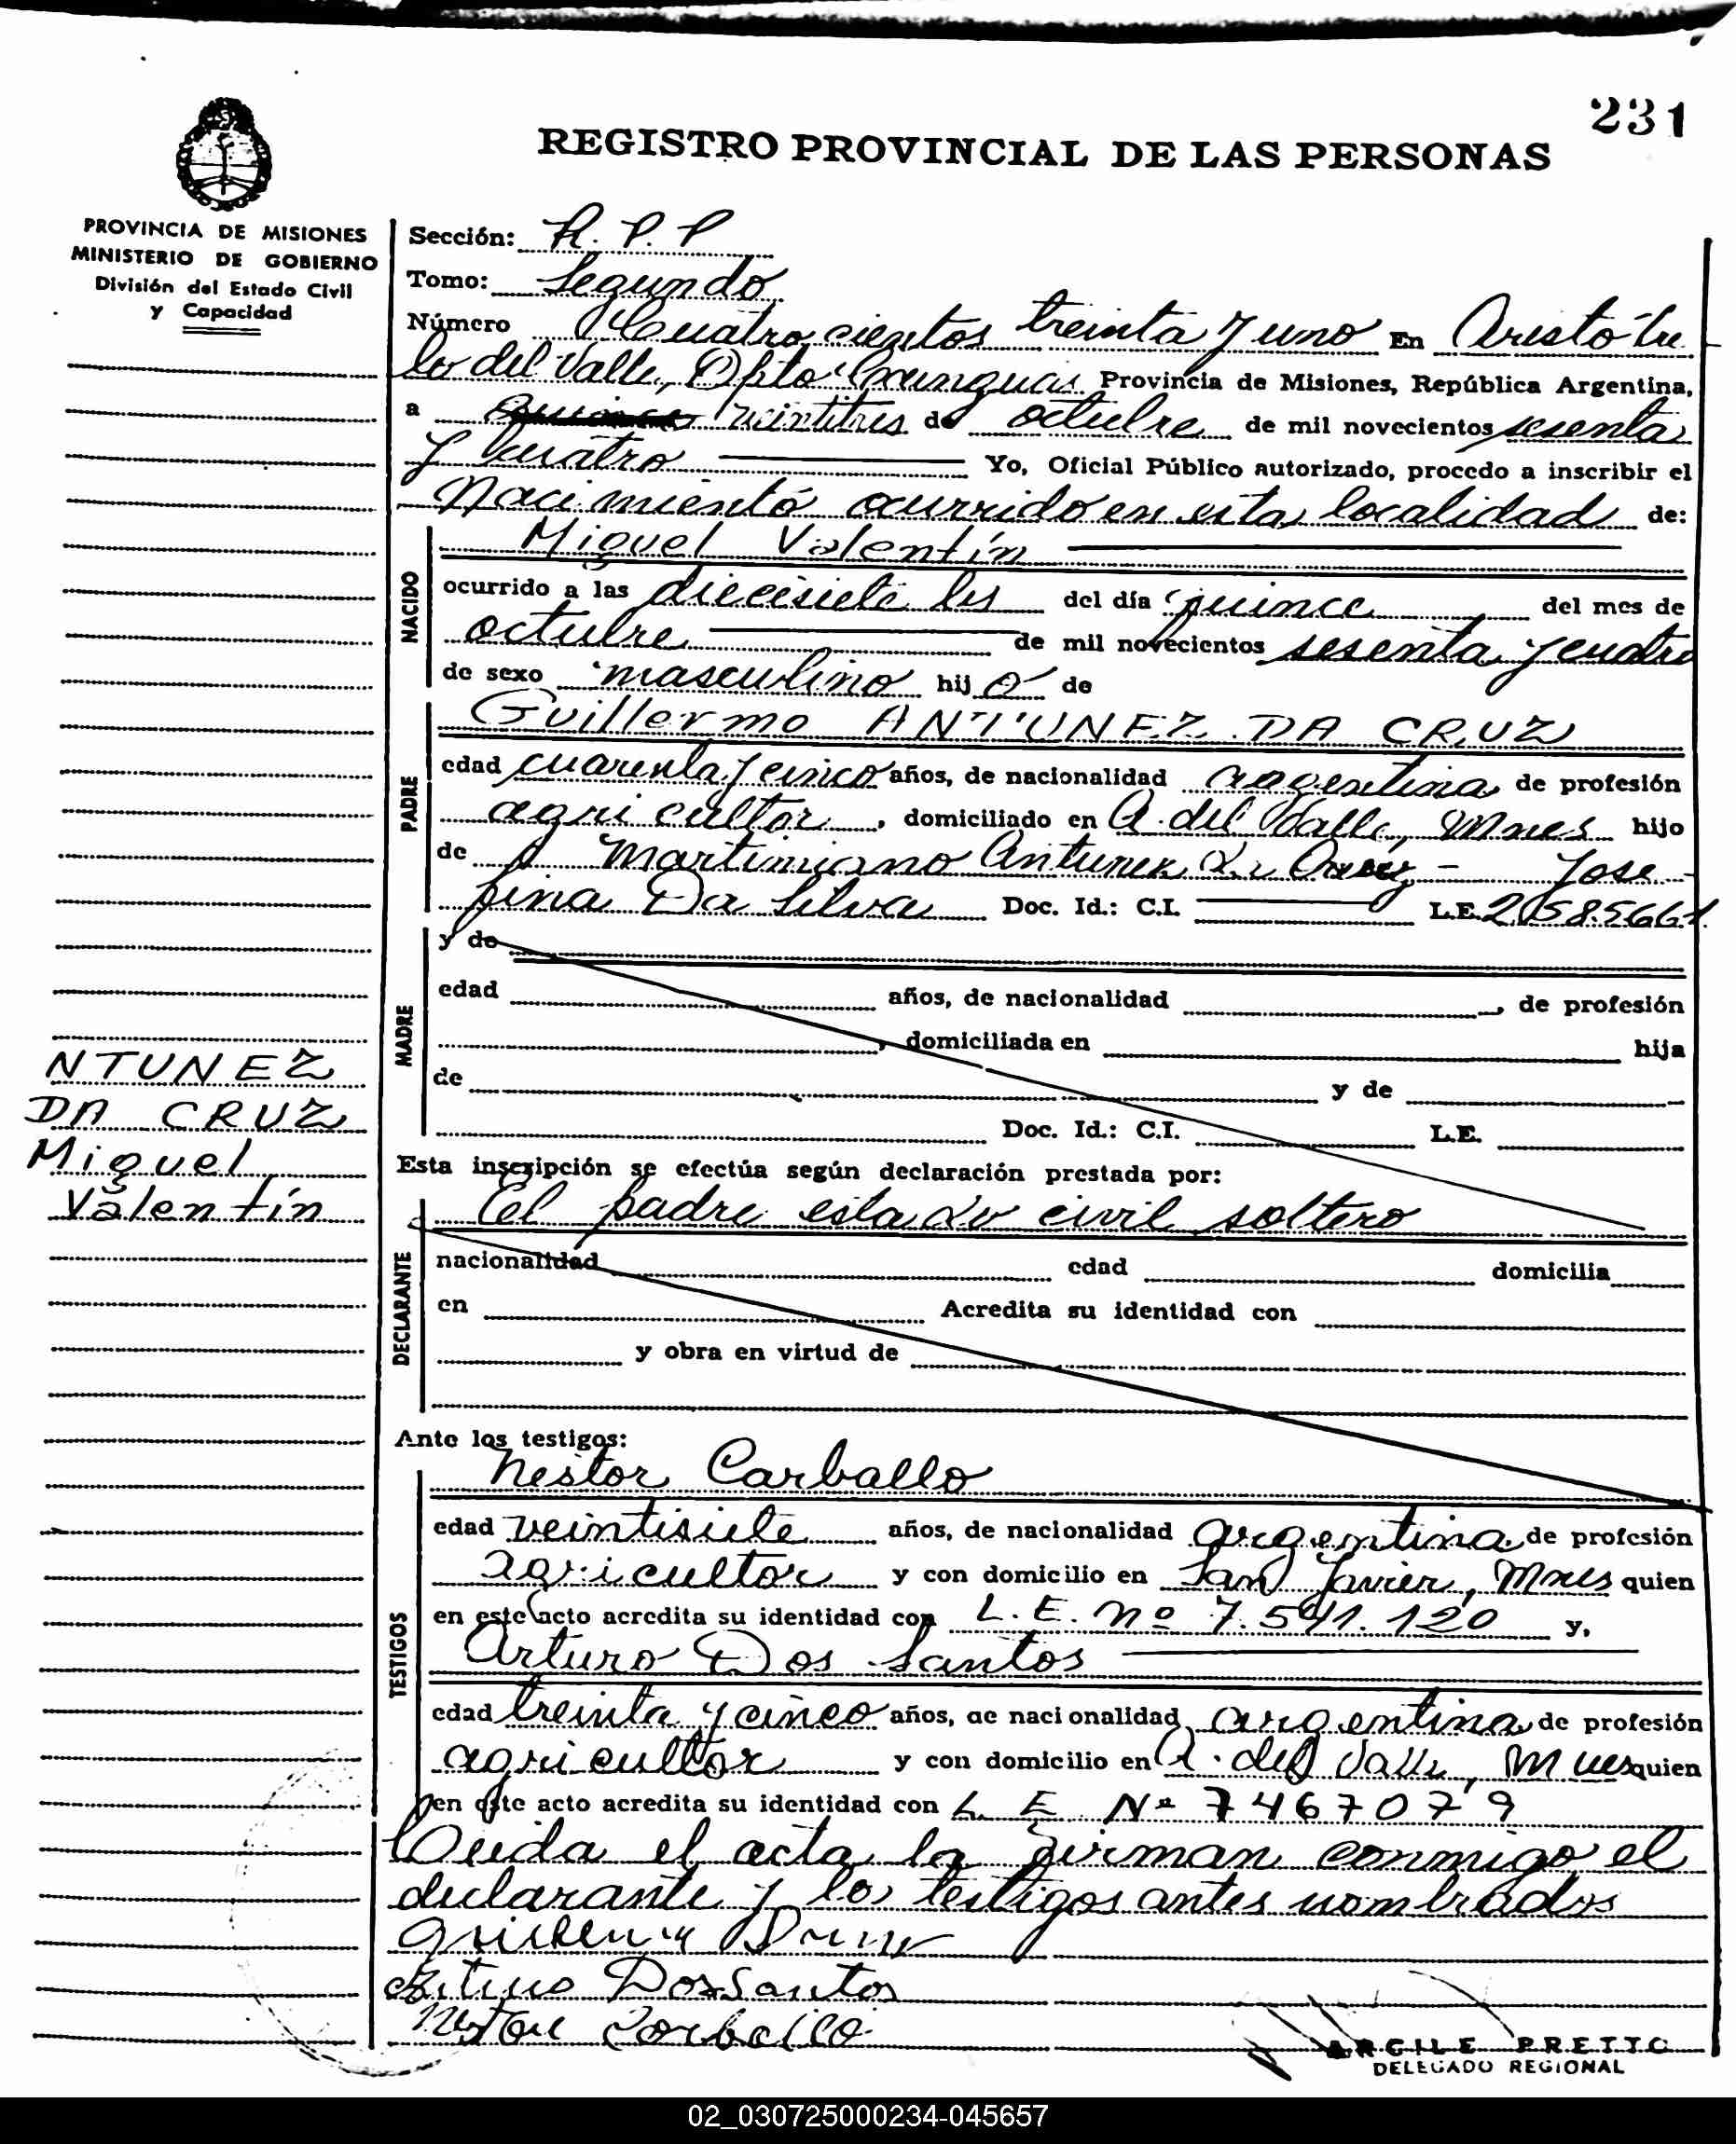 231
REGISTRO PROVINCIAL DE LAS PERSONAS
PROVINCIA DE MISIONES
MINISTERIO DE GOBIERNO
División del Estado Civil
y Capacidad
NTUNEZ
DA CRUZ
Miguel
Valentín
Sección: R. P. P
Tomo: Segundo
Número Cuatrocientos treinta y uno En Aristóbu
lo del Valle, Dpto Cainguas Provincia de Misiones, República Argentina,
a veintitres de octubre de mil novecientos sesenta
y cuatro Yo, Oficial Público autorizado, procedo a inscribir el
Nacimiento ocurrido en esta localidad de:
NACIDO
Miguel Valentín
ocurrido a las diecisiete hs del día quince del mes de
octubre de mil novecientos sesenta y cuatro
de sexo masculino hijo de
PADRE
Guillermo ANTUNEZ DA CRUZ
edad cuarenta y cinco años, de nacionalidad argentina de profesión
agricultor, domiciliado en A. del Valle, Mnes hijo
de Martimiano Antunez Da Cruz - Jose
fina Da Silva Doc. Id.: C.I. L.E.
MADRE
y de
edad años, de nacionalidad , de profesión
, domiciliada en hija
de y de
Doc. Id.: C.I. L.E.
Esta inscripción se efectúa según declaración prestada por:
DECLARANTE
El padre estado civil soltero
nacionalidad edad domicilia
en Acredita su identidad con
y obra en virtud de
Ante los testigos:
TESTIGOS
Nestor Carballo
edad veintisiete años, de nacionalidad argentina de profesión
agricultor y con domicilio en San Javier, Mnes quien
en este acto acredita su identidad con L. E. Nº 7.541.120 y,
Arturo Dos Santos
edad treinta y cinco años, de nacionalidad argentina de profesión
agricultor y con domicilio en A. del Valle, Mnes quien
en este acto acredita su identidad con L. E. Nº 7467079
Leida el acta la firman conmigo el
declarante y los testigos antes nombrados
Arturo Dos Santos
Nestor Carballo
ARGILE PRETTO
DELEGADO REGIONAL
02_030725000234-045657